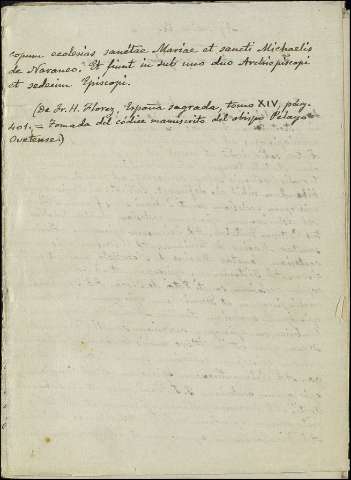 copum ecclesias sanctae Mariae et sancti Michaelis
de Naranco. Et fiunt in sub uno duo Archiepiscopi
et sedecim Episcopi.
(De Fr. H. Florez, España sagrada, tomo XIV, pág.
401. = Tomada del códice manuscrito del obispo Pelayo
Ovetense.)